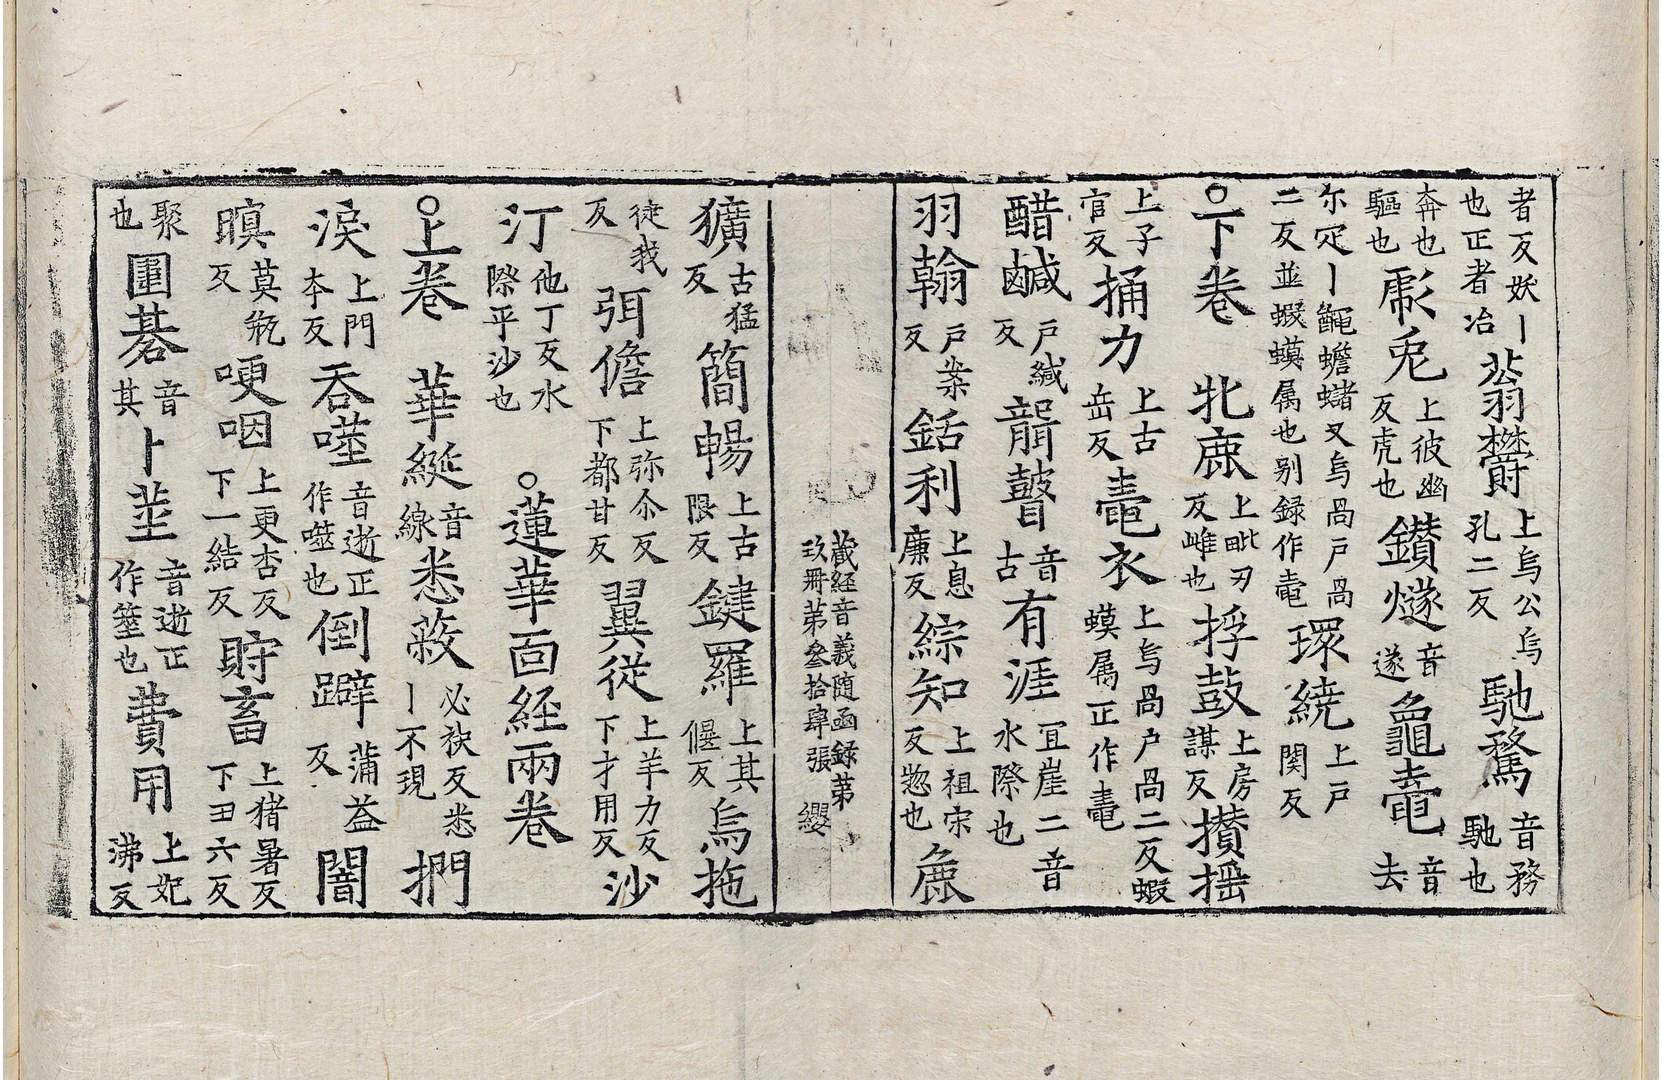 者反妖丨也正者冶蓊欝上烏公烏孔二反馳騖音務馳也
奔也驅也彪兎上彼幽反虎也鑽燧音遂龜鼃音去
尓定丨𪓰蟾蠩又烏咼戸咼二反並蝦蟆属也别録作鼃環繞上戸関反
○下卷　牝鹿上毗刃反雌也捊鼓上房謀反攢搖
上子官反捅力上古岳反鼃衣上烏咼户咼二反蝦蟆属正作鼃
醋鹹戸緘反瞽音古有涯冝崖二音水際也
羽翰戸案反銛利上息廉反綜知上祖宋反惣也麁
藏經音義随函録第玖冊第叁拾肆張　纓
獷古猛反簡暢上古限反鍵羅上其偃反烏拖
徒我反弭儋上弥尒反下都甘反翼從上羊力反下才用反沙
汀他丁反水際平沙也　○蓮華面経兩卷
○上卷　華綖音線悉蔽必袂反悉丨不現捫
淚上門夲反吞噬音逝正作噬也倒躃蒲益反闇
瞑莫瓶反哽咽上更杏反下一結反貯畜上猪暑反下丑六反
聚也圍碁音其卜筮音逝正作筮也費用上妃沸反